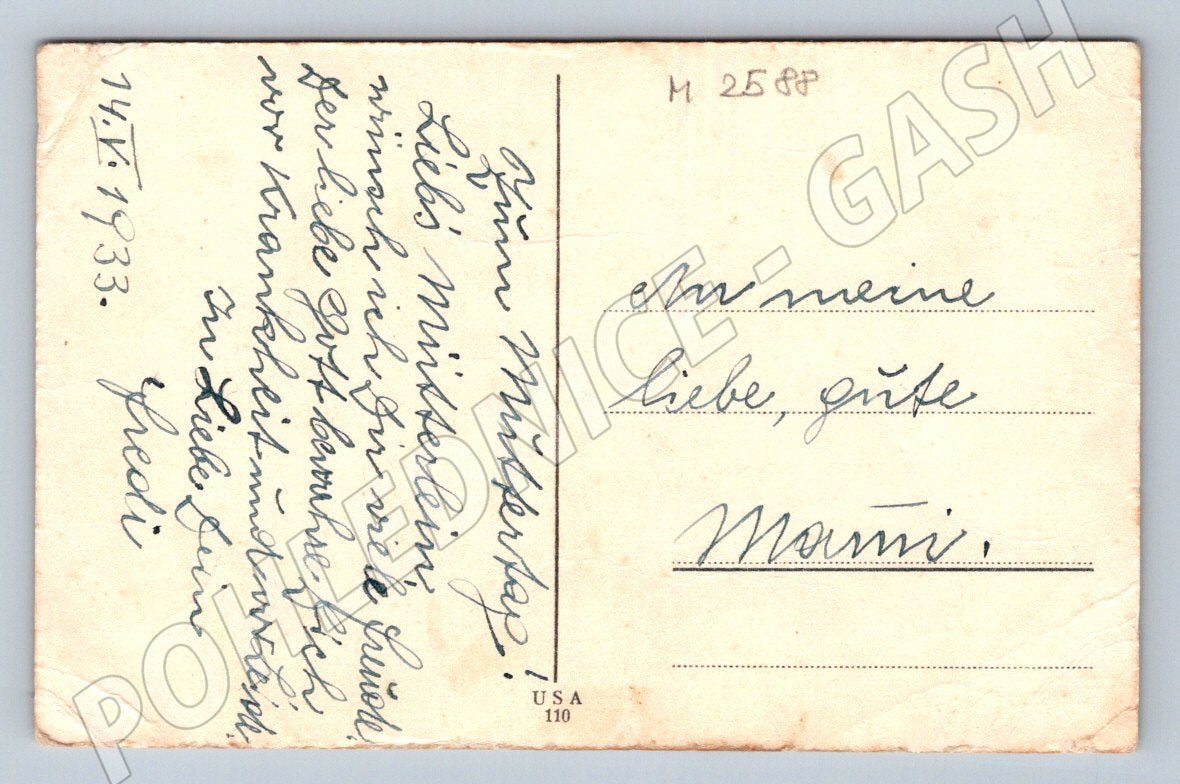 Zum Müttertag!
Liebs Mütterlein
wünsch ich Dir viele Freude
Der liebe Gott bewahre Dich
vor Krankheit und
In Liebe Dein
Fredi
14.V.1933.
M 2588
An meine
liebe, gute
Mami.
USA
110
POHLEDNICE - GASH